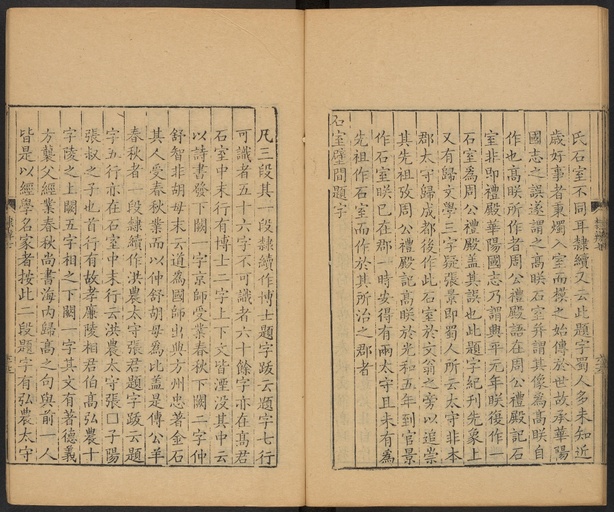 氏石室不同耳隸續又云此題字蜀人多未知近
歲好事者秉燭入室而摸之始傳於世故承華陽
國志之誤遂謂之高眹石室并謂其像為高眹自
作也高眹所作者周公禮殿語在周公禮殿記石
室非即禮殿華陽國志乃謂興平元年眹後作一
石室為周公禮殿蓋其誤也此題字紀刊先象上
又有歸文學三字疑張景即蜀人所云太守非本
郡太守歸成都後作此石室於文翁之旁以追崇
其先祖攷周公禮殿記高眹於光和五年到官景
作石室眹已在郡一時安得有兩太守且未有為
先祖作石室而作於其所治之郡者
石室壁間題字
凡三段其一段隸續作博士題字跋云題字七行
可識者五十六字不可識者六十餘字亦在高君
石室中末行有博士二字上下文皆湮沒其中云
以詩書發下闕一字京師受業春秋下闕二字仲
舒智非胡母末云道為國師出典方州忠著金石
其人受春秋業而以仲舒胡母為比蓋是傳公羊
春秋者一段隸續作洪農太守張君題字跋云題
字五行亦在石室中末行云洪農太守張口子陽
張叔之子也首行有故孝廉陵相君伯高弘農十
字陵之上闕五字相之下闕一字其文有著德義
方襲父經業春秋尚書海內歸高之句與前一人
皆是以經學名家者按此二段題字有弘農太守